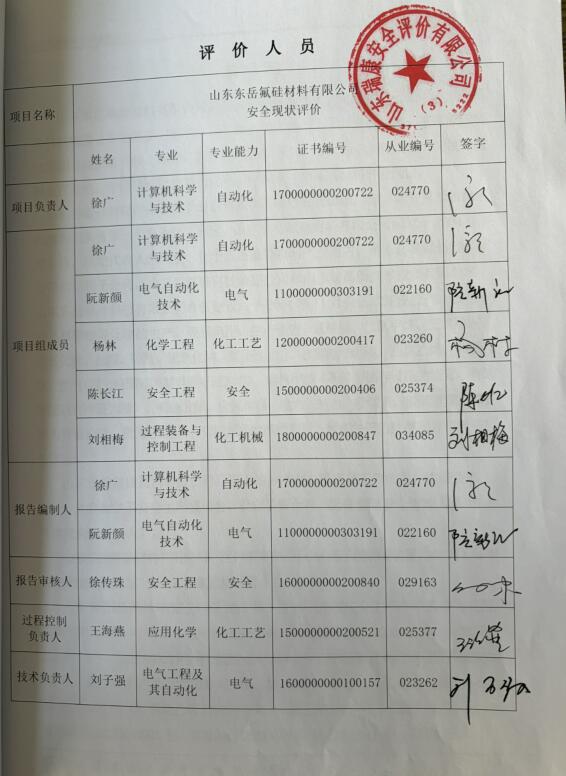 评价人员
山东瑞康安全评价有限公司
(3)
项目名称 山东东岳氟硅材料有限公司
安全现状评价
姓名 专业 专业能力 证书编号 从业编号 签字
项目负责人 徐广 计算机科学与技术 自动化 1700000000200722 024770
项目组成员 徐广 计算机科学与技术 自动化 1700000000200722 024770
阮新颜 电气自动化技术 电气 1100000000303191 022160
杨林 化学工程 化工工艺 1200000000200417 023260
陈长江 安全工程 安全 1500000000200406 025374
刘相梅 过程装备与控制工程 化工机械 1800000000200847 034085 刘相梅
报告编制人 徐广 计算机科学与技术 自动化 1700000000200722 024770
阮新颜 电气自动化技术 电气 1100000000303191 022160
报告审核人 徐传珠 安全工程 安全 1600000000200840 029163
过程控制负责人 王海燕 应用化学 化工工艺 1500000000200521 025377
技术负责人 刘子强 电气工程及其自动化 电气 1600000000100157 023262